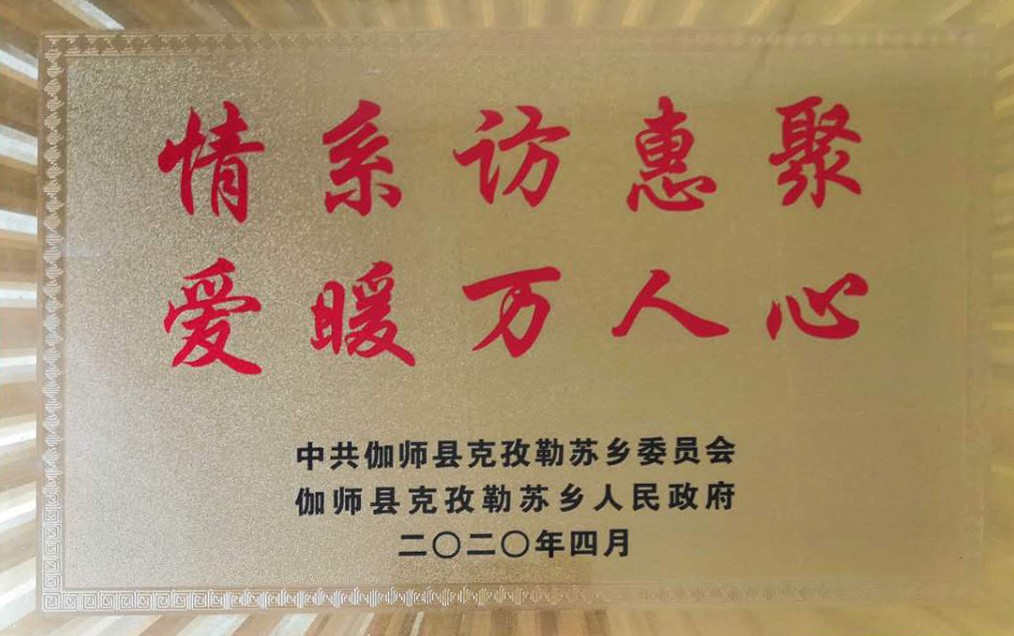 情系访惠聚
爱暖万人心
中共伽师县克孜勒苏乡委员会
伽师县克孜勒苏乡人民政府
二〇二〇年四月